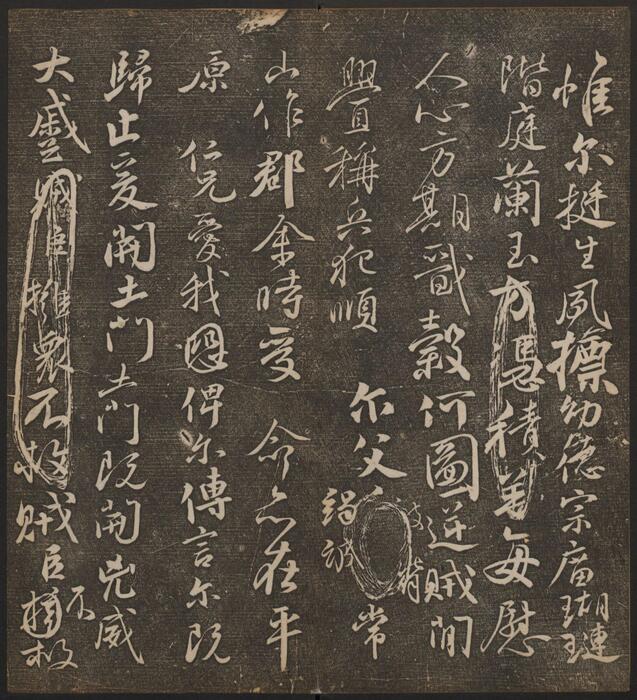 惟尔挺生夙標幼德宗庿瑚璉
階庭蘭玉方憑積善每慰
人心方期戩穀何圖逆賊間
舋稱兵犯順 尔父竭誠被脅常
山作郡余時受 命亦在平
原 仁兄愛我恐俾尔傳言尔既
歸止爰開土門土門既開兇威
大蹙賊臣擁衆不救賊臣不擁救